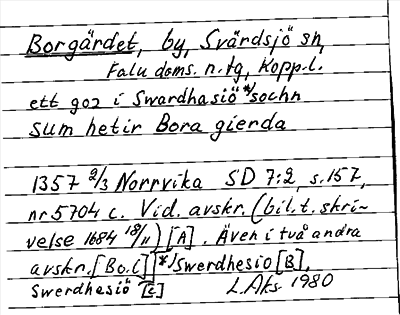 Borgärdet, by, Svärdsjö sn,
Falu doms. n. tg, Kopp. l.
ett goz i Swardhasiö *) sochn
sum hetir Bora gierda
1357 2/3 Norrvika SD 7:2, s. 157,
nr 5704 c. Vid. avskr. (bil. t. skri-
velse 1684 18/11) [A]. Även i två andra
avskr. [Bo.C] *) Swerdhesio [B],
Swerdhesiö [C] L. Aks 1980